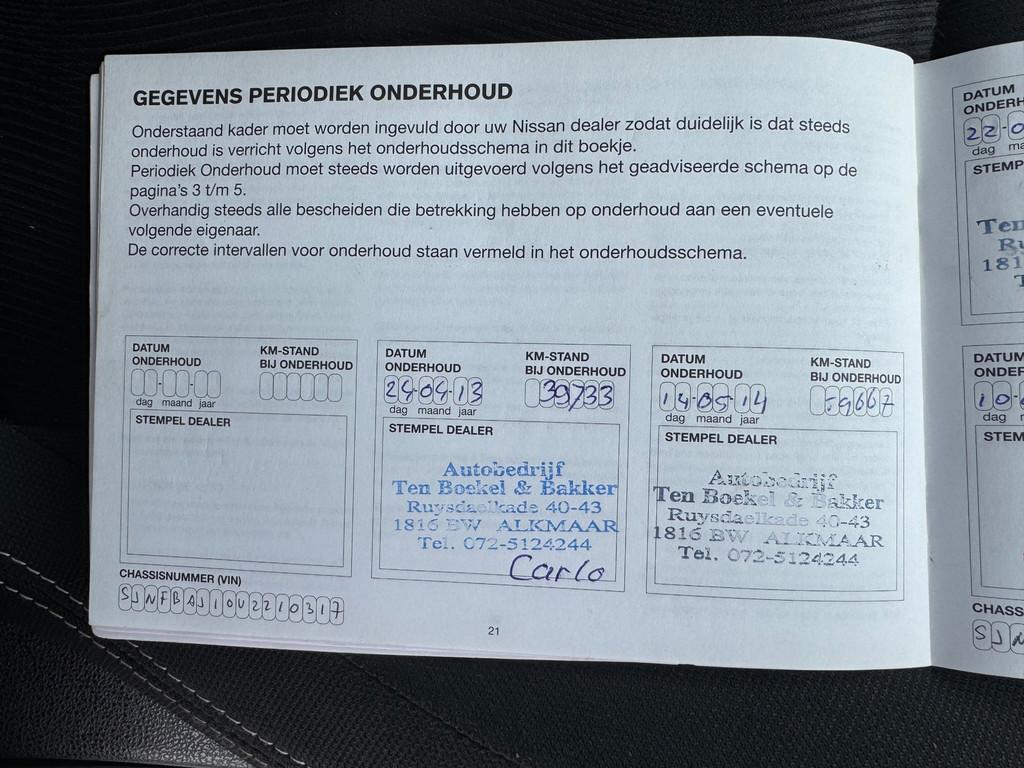 GEGEVENS PERIODIEK ONDERHOUD
Onderstaand kader moet worden ingevuld door uw Nissan dealer zodat duidelijk is dat steeds
onderhoud is verricht volgens het onderhoudsschema in dit boekje.
Periodiek Onderhoud moet steeds worden uitgevoerd volgens het geadviseerde schema op de
pagina's 3 t/m 5.
Overhandig steeds alle bescheiden die betrekking hebben op onderhoud aan een eventuele
volgende eigenaar.
De correcte intervallen voor onderhoud staan vermeld in het onderhoudsschema.
DATUM
ONDERHOUD
KM-STAND
BIJ ONDERHOUD
dag maand jaar
STEMPEL DEALER
CHASSISNUMMER (VIN)
SJNFBAJ10U2210317
DATUM
ONDERHOUD
KM-STAND
BIJ ONDERHOUD
24-04-13
39733
dag maand jaar
STEMPEL DEALER
Autobedrijf
Ten Boekel & Bakker
Ruysdaelkade 40-43
1816 BW ALKMAAR
Tel. 072-5124244
Carlo
DATUM
ONDERHOUD
KM-STAND
BIJ ONDERHOUD
14-05-14
59667
dag maand jaar
STEMPEL DEALER
Autobedrijf
Ten Boekel & Bakker
Ruysdaelkade 40-43
1816 BW ALKMAAR
Tel. 072-5124244
21
DATUM
ONDERH
22-0
dag ma
STEMP
Ten
Ru
181
T
DATUM
ONDER
10-
dag
STEM
CHASS
SJN